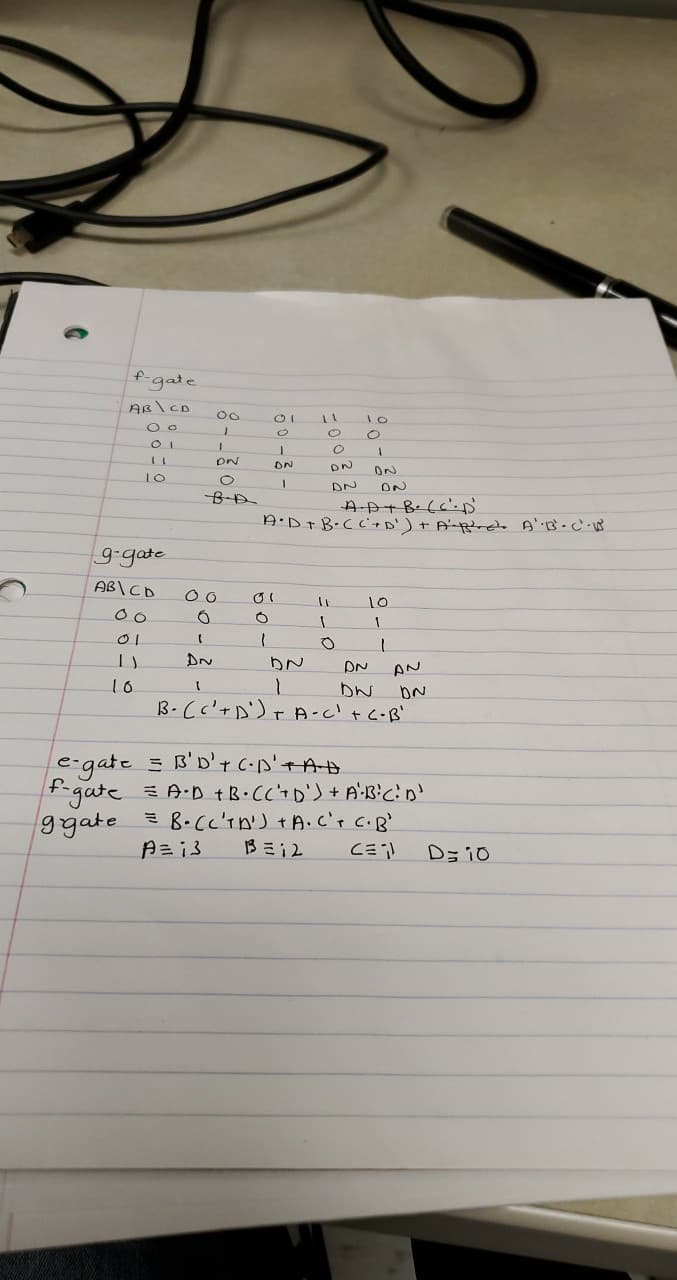 f-gate
AB\CD 00 01 11 10
00 1 0 0 0
01 1 1 0 1
11 DN DN DN DN
10 0 1 DN DN
B-D A.D+B.(C'.D'
A.D+B.(C'+D')+ A'.B'.C'. A'.B'.C'.D'
g-gate
AB\CD 00 01 11 10
00 0 0 1 1
01 1 1 0 1
11 DN DN DN DN
10 1 1 DN DN
B.(C'+D')+A.C'+C.B'
e-gate ≡ B'D'+C.D'+A.D
f-gate ≡ A.D+B.(C'+D')+A'.B'.C'.D'
g-gate ≡ B.(C'+D')+A.C'+C.B'
A≡i3 B≡i2 C≡i1 D≡i0